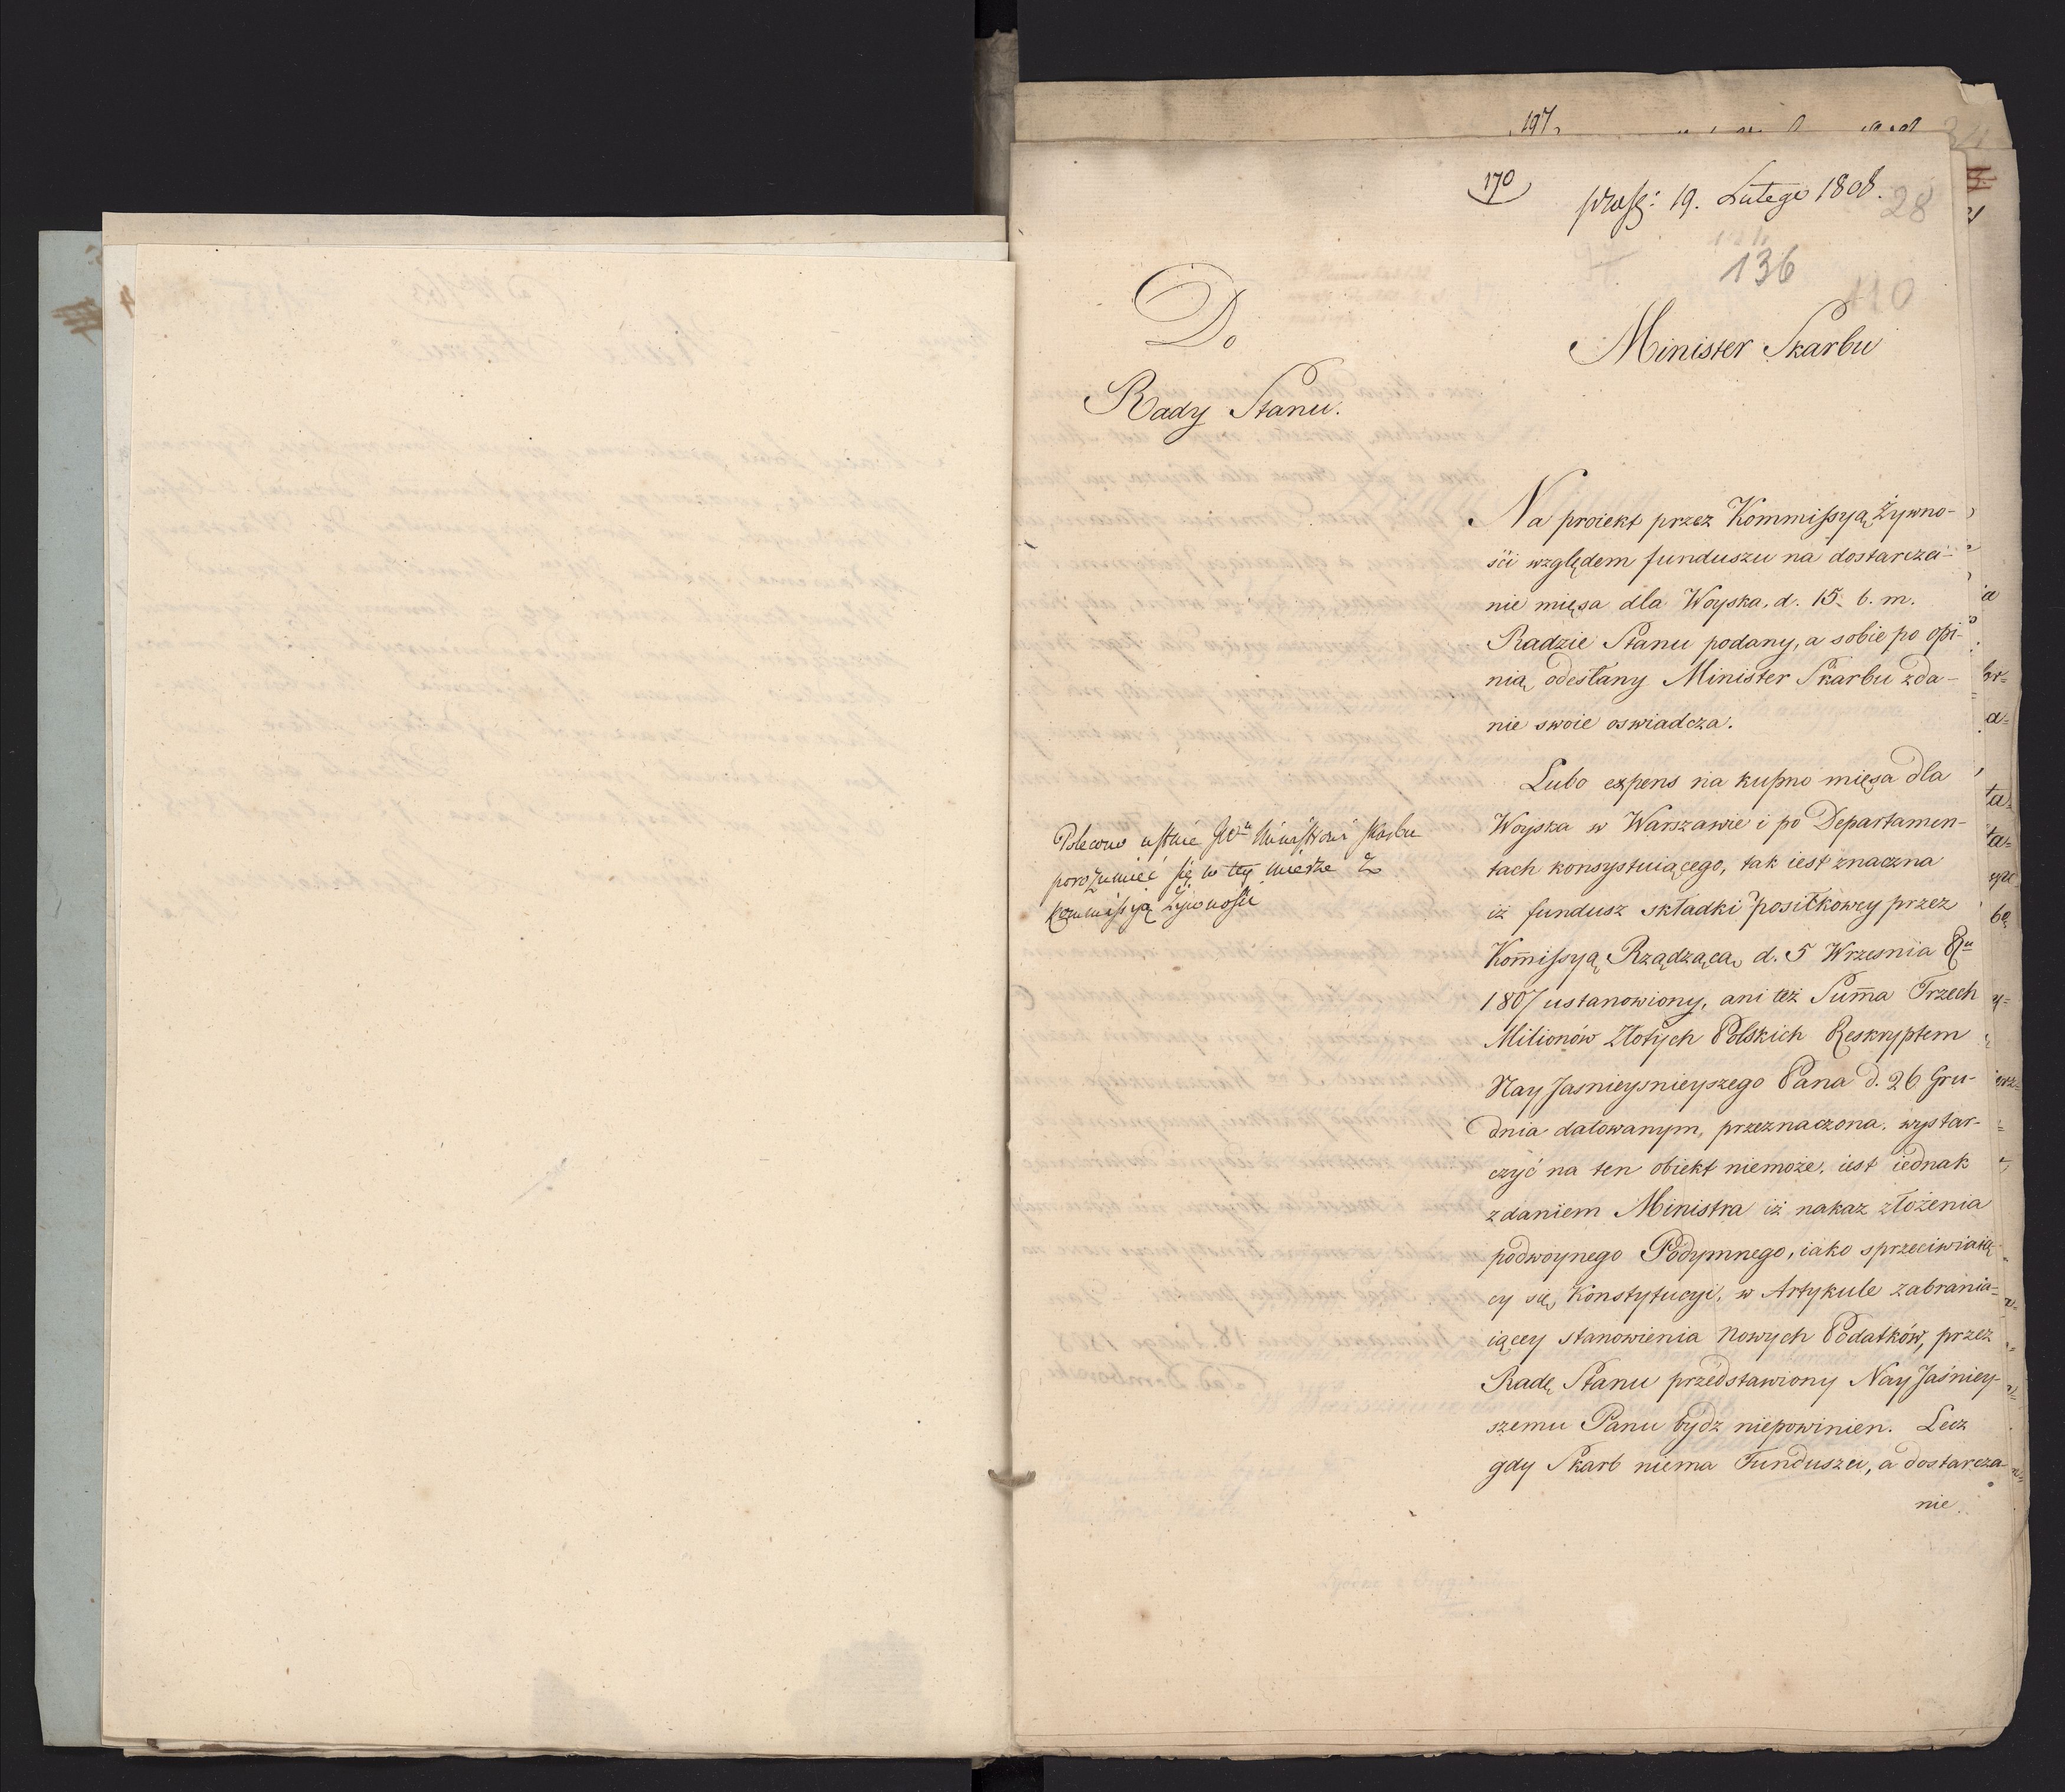 197
170
praes: 19. Lutego 1808.
28
136
110
Do
Minister Skarbu
Rady Stanu.
Na proiekt przez Kommissyą Żywno-
ści względem funduszu na dostarcza-
nie mięsa dla Woyska, d. 15. b. m.
Radzie Stanu podany, a sobie po opi-
nią odesłany Minister Skarbu zda-
nie swoie oswiadcza.
Lubo expens na kupno mięsa dla
Woyska w Warszawie i po Departamen-
tach konsystuiącego, tak iest znaczna
iż fundusz składki posiłkowey przez
Kom̄issyą Rządzącą d. 5 Wrzesnia Ru
1807 ustanowiony, ani też Sum̄a Trzech
Milionów Złotych Polskich Reskryptem
Nay Jasnieysnieyszego Pana d. 26 Gru-
dnia datowanym, przeznaczona, wystar-
czyć na ten obiekt niemoże, iest iednak
zdaniem Ministra iż nakaz złożenia
podwoynego Podymnego, iako sprzeciwiaią
cy się Konstytucyi, w Artykule zabrania-
iącey stanowienia nowych Podatków, przez
Radę Stanu przedstawiony Nay Jaśniey-
szemu Panu bydz niepowinien. Lecz
gdy Skarb niema Funduszu, a dostarcza-
nie
Polecono ustnie JWu Ministrowi Skarbu
porozumieć się w tey mierze z
Kommissyą Żywnosci